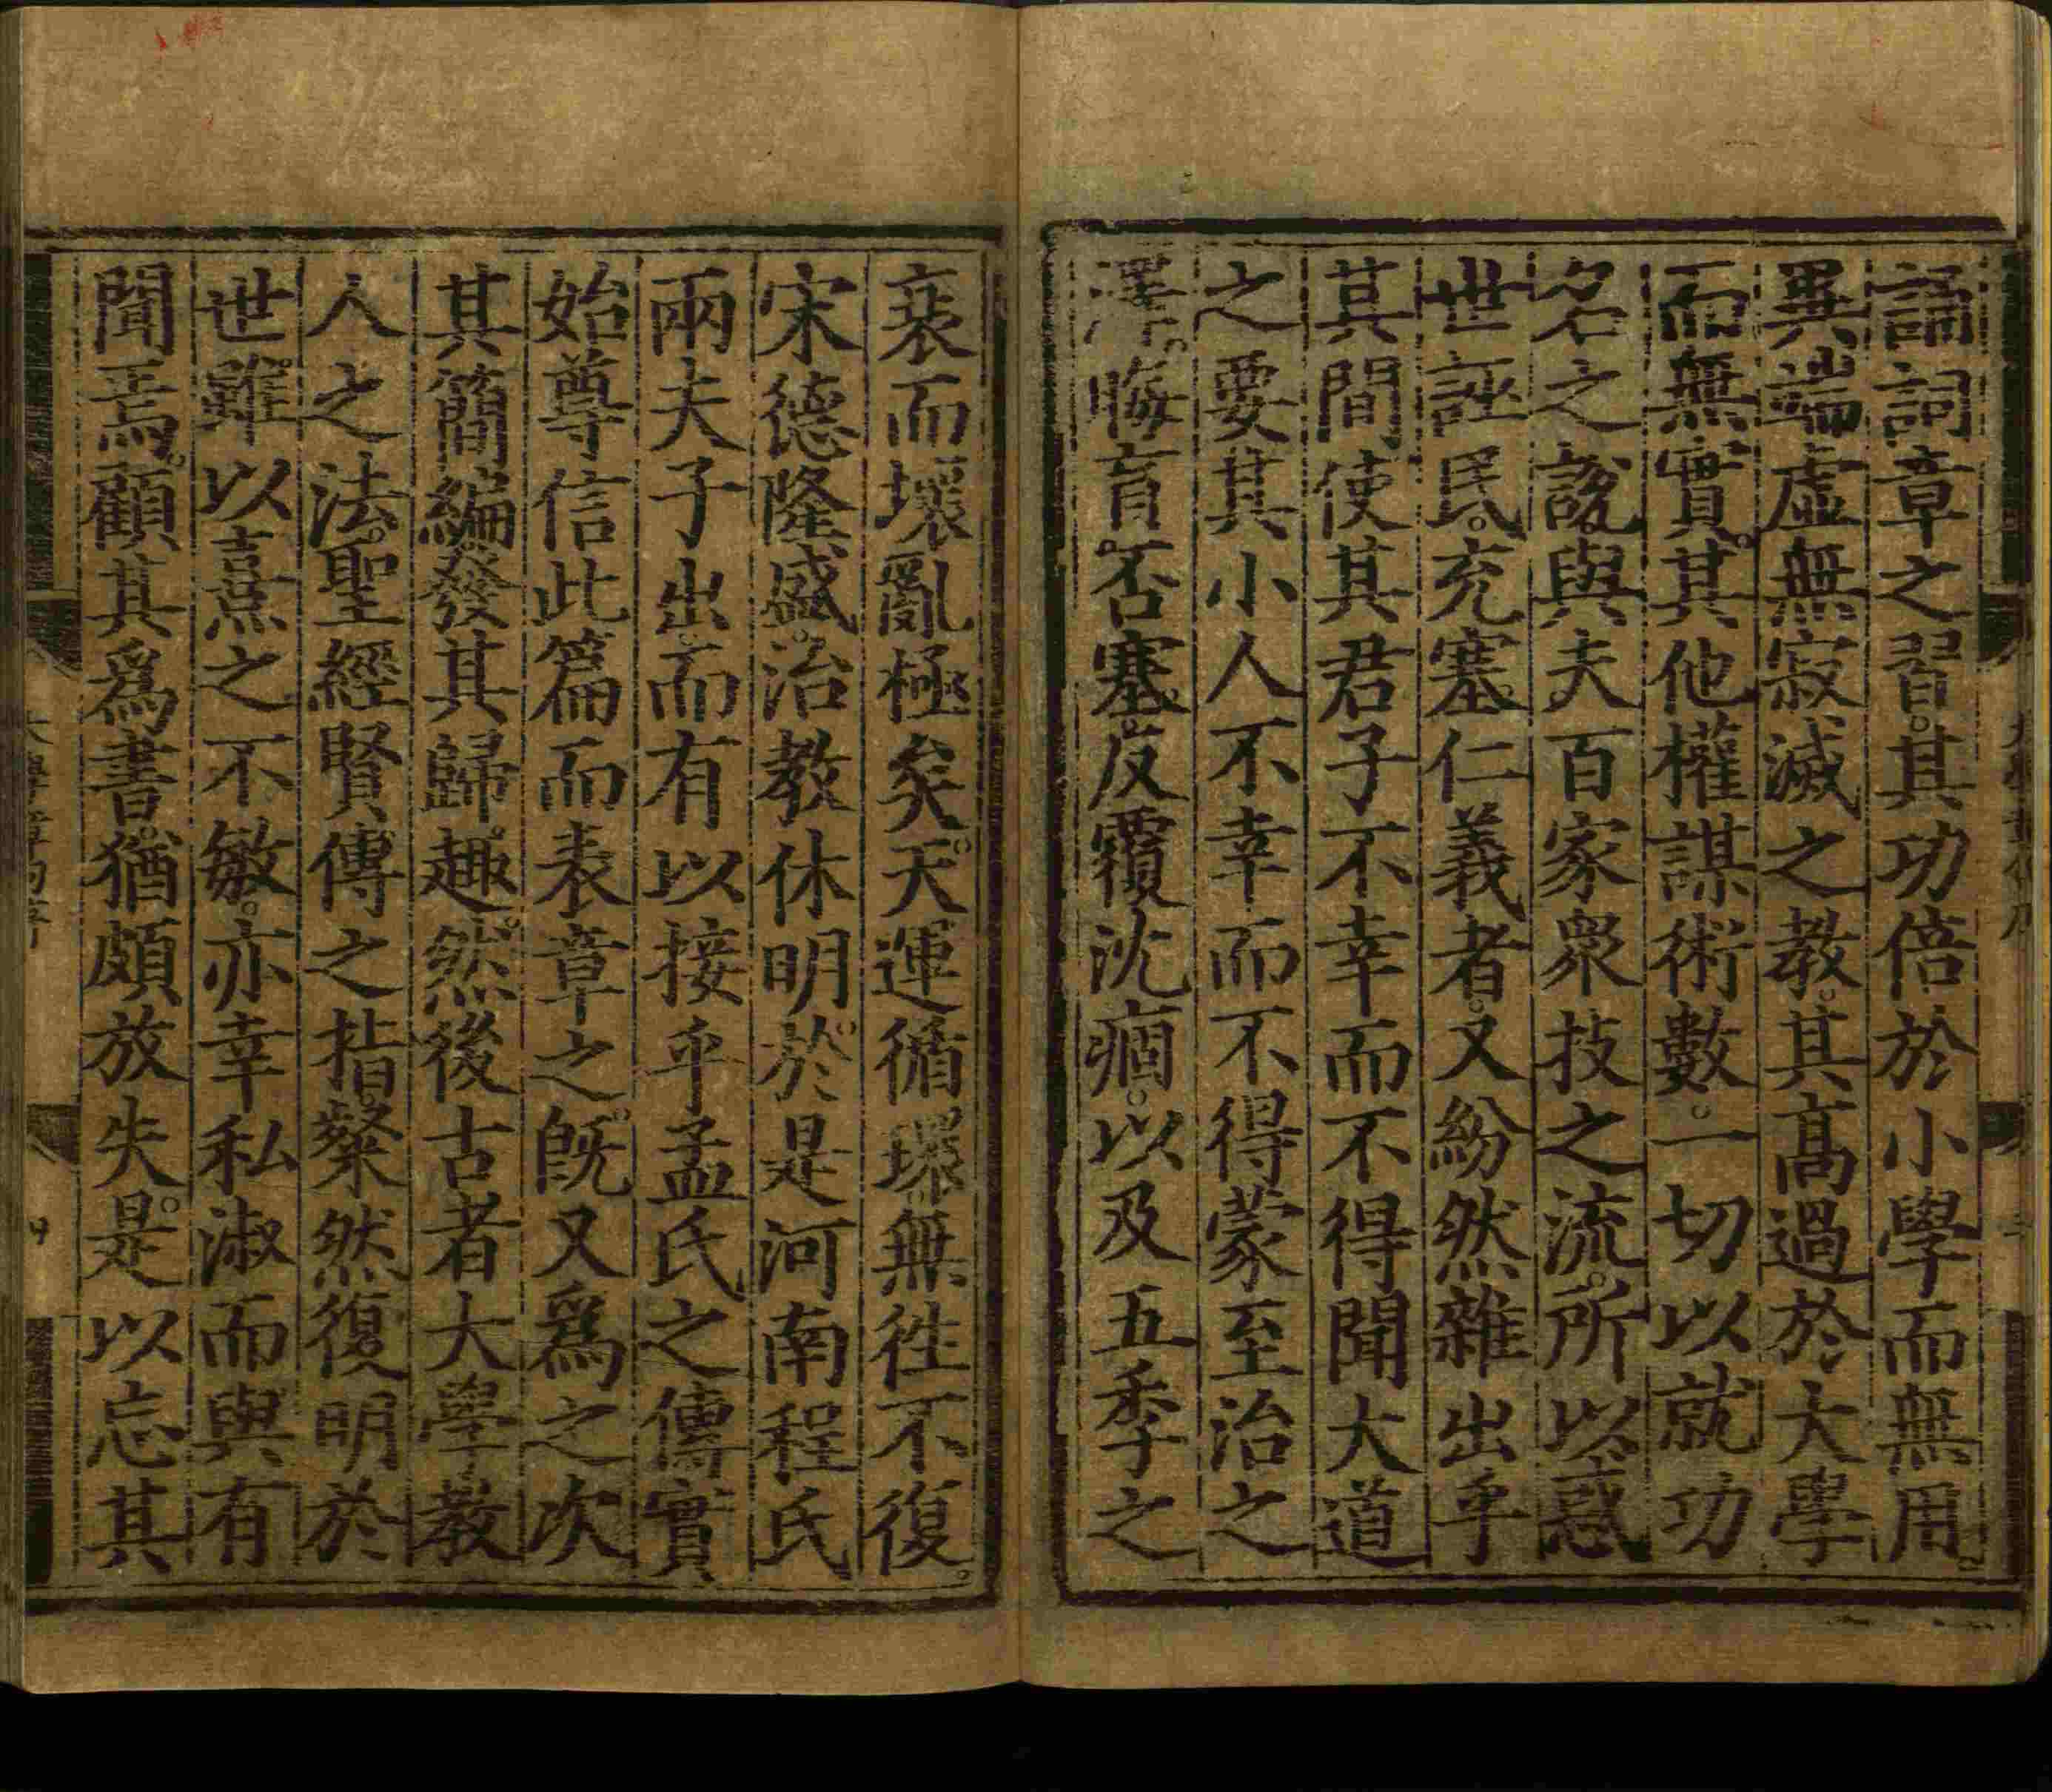 誦詞章之習。其功倍於小學而無用。
異端虛無寂滅之教。其高過於大學
而無實。其他權謀術數。一切以就功
名之說。與夫百家衆技之流。所以惑
世誣民。充塞仁義者。又紛然雜出乎
其間。使其君子不幸而不得聞大道
之要。其小人不幸而不得蒙至治之
澤。晦盲否塞。反覆沈痼。以及五季之
衰而壞亂極矣。天運循環無往不復。
宋德隆盛。治教休明。於是河南程氏
兩夫子出。而有以接乎孟氏之傳。實
始尊信此篇而表章之。旣又爲之次
其簡編。發其歸趣。然後古者大學教
人之法。聖經賢傳之指。粲然復明於
世。雖以熹之不敏。亦幸私淑而與有
聞焉。顧其爲書。猶頗放失。是以忘其
大學章句序
四